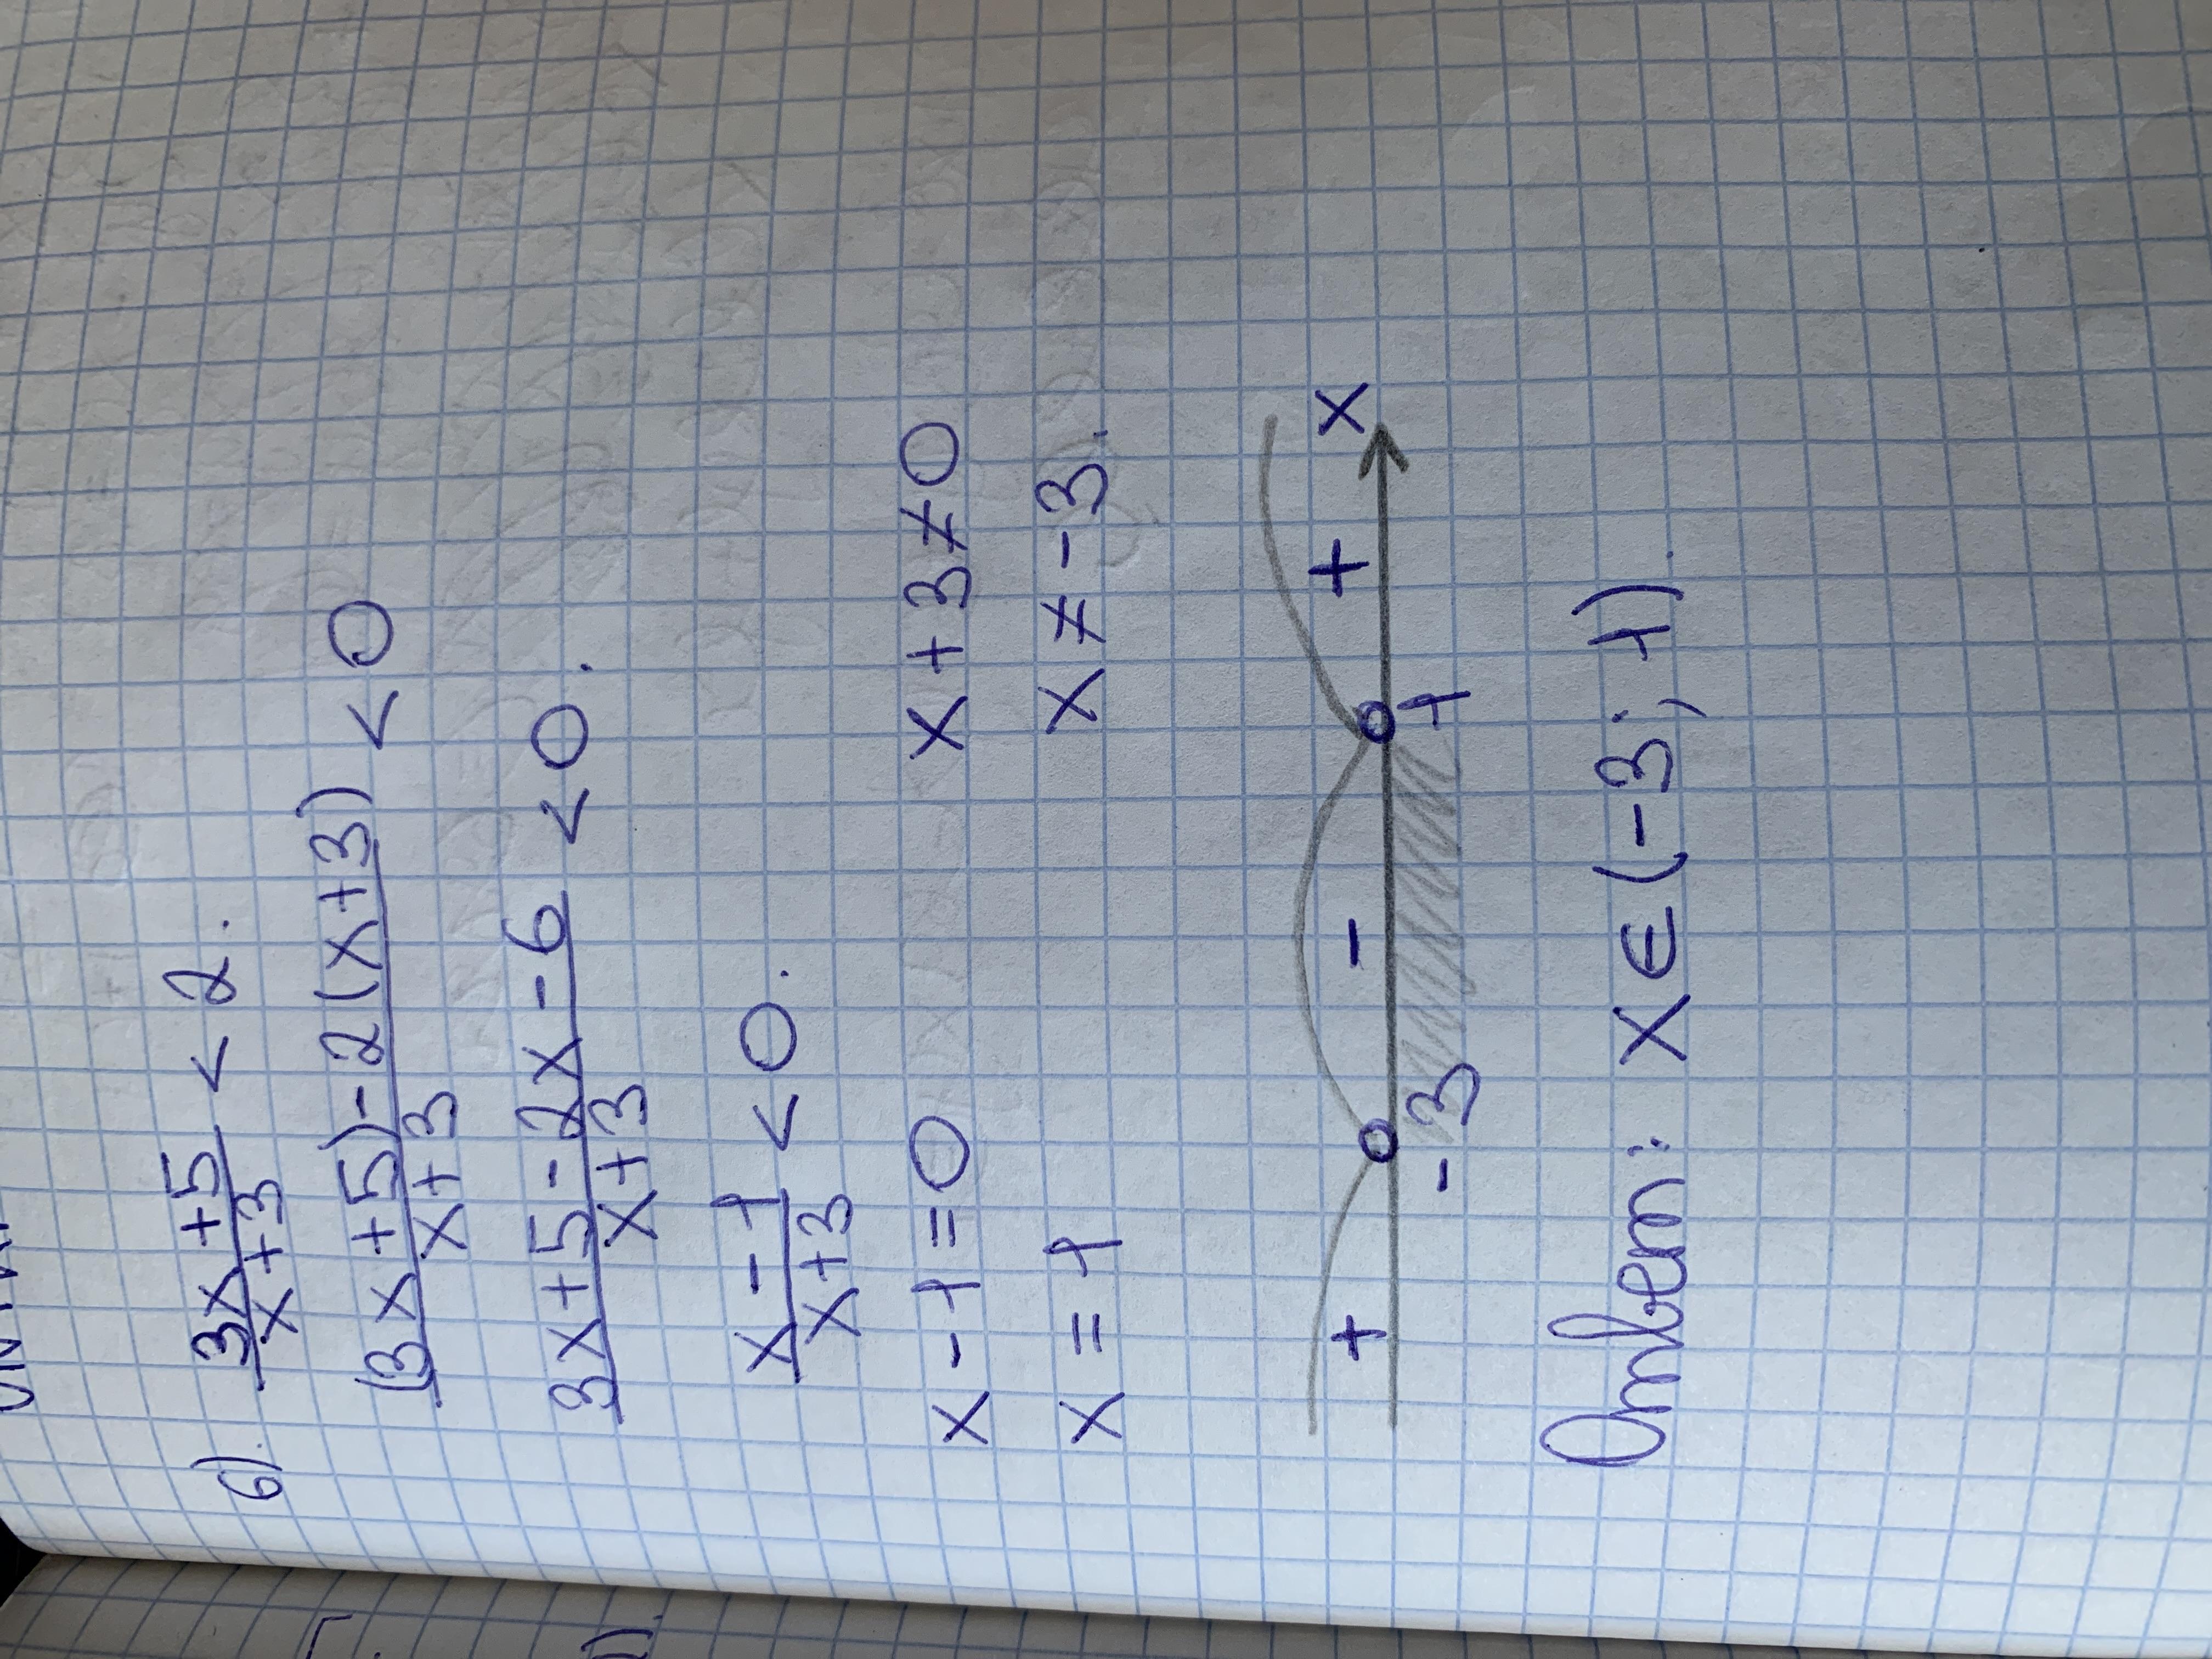 б). 3x+5/x+3 < 2.
(3x+5)-2(x+3)/x+3 < 0
3x+5-2x-6/x+3 < 0.
x-1/x+3 < 0.
x-1=0 x+3≠0
x=1 x≠-3.
+ - + x
-3 1
Ответ: x∈(-3; 1).